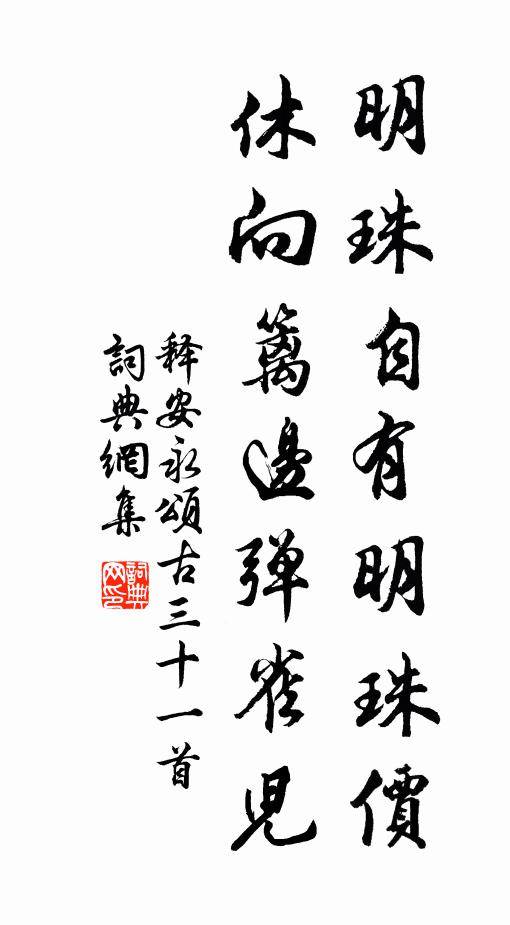 明珠自有明珠價
休向籬邊彈雀兒
释安永頌古三十一首
詞典網集
詞典網印